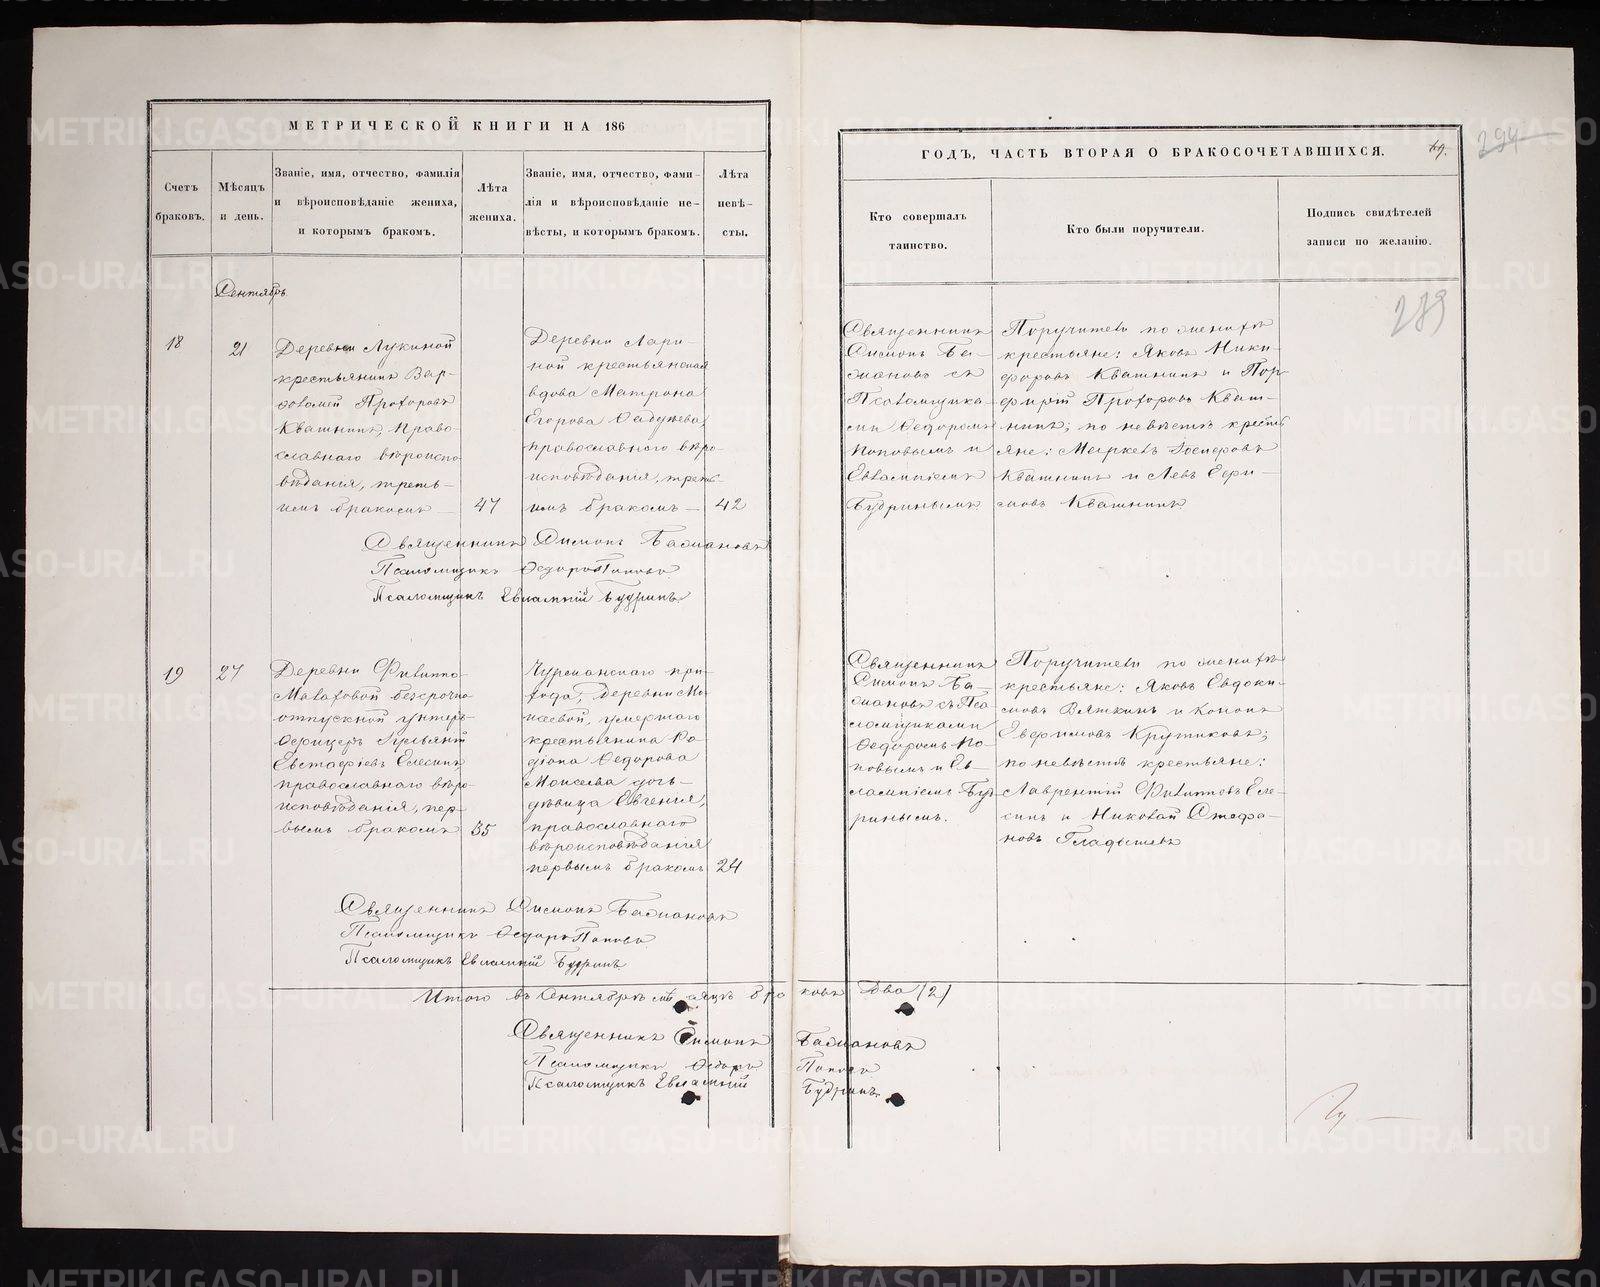 МЕТРИЧЕСКОЙ КНИГИ НА 186
Счетъ браковъ.
Мѣсяцъ и день.
Званіе, имя, отчество, фамилія
и вѣроисповѣданіе жениха,
и которымъ бракомъ.
Лѣта жениха.
Званіе, имя, отчество, фами-
лія и вѣроисповѣданіе не-
вѣсты, и которымъ бракомъ.
Лѣта невѣ-
сты.
Сентябрь
18
21
Деревни Лукиной
крестьянинъ Вар-
ѳоломей Прохоровъ
Квашнинъ, право-
славнаго вѣроиспо-
вѣданія, треть-
имъ бракомъ
47
Деревни Лари-
ной крестьянская
вдова Матрона
Егорова
православнаго вѣро-
исповѣданія, треть-
имъ бракомъ
42
Священникъ Симонъ Басмановъ
Псаломщикъ Ѳедоръ Поповъ
Псаломщикъ Евлампій Будринъ
19
27
Деревни Филиппо-
Малаховой безсрочно
отпускной унтеръ-
офицеръ
Евстафіевъ Елесинъ
православнаго вѣро-
исповѣданія, пер-
вымъ бракомъ
35
при-
хода, деревни Мо-
сеевой, умершаго
крестьянина Ро-
діона Ѳедорова
Моисеева дочь
дѣвица Евгенія,
православнаго
вѣроисповѣданія
первымъ бракомъ
24
Священникъ Симонъ Басмановъ
Псаломщикъ Ѳедоръ Поповъ
Псаломщикъ Евлампій Будринъ
Итого въ Сентябрѣ мѣсяцѣ браковъ два (2)
Священникъ Симонъ Басмановъ
Псаломщикъ Ѳедоръ Поповъ
Псаломщикъ Евлампій Будринъ
ГОДЪ, ЧАСТЬ ВТОРАЯ О БРАКОСОЧЕТАВШИХСЯ.
294
Кто совершалъ
таинство.
Кто были поручители.
Подпись свидѣтелей
записи по желанію.
289
Священникъ
Симонъ Ба-
смановъ съ
Псаломщика-
ми Ѳедоромъ
Поповымъ и
Евлампіемъ
Будринымъ
Поручители по женихѣ
крестьяне: Яковъ Ники-
форовъ Квашнинъ и Пор-
фирій Прохоровъ Кваш-
нинъ; по невѣстѣ крестья-
яне:
Квашнинъ и Левъ Ефи-
мовъ Квашнинъ
Священникъ
Симонъ Ба-
смановъ съ Пса-
ломщиками
Ѳедоромъ По-
повымъ и Ев-
лампіемъ Буд-
ринымъ.
Поручители по женихѣ
крестьяне: Яковъ Евдоки-
мовъ Вяткинъ и Кононъ
Крутиковъ;
по невѣстѣ крестьяне:
Лаврентій Филипповъ Еле-
синъ и Николай Стефа-
новъ Гладышевъ
METRIKI.GASO-URAL.RU